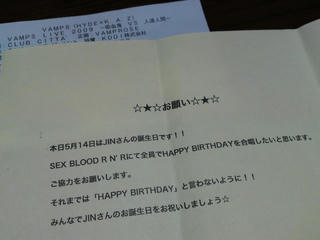 VAMPS (HYDE×K.A.Z)
VAMPS LIVE 2009
CLUB CITTA' VAMPROSE
☆★☆お願い☆★☆
本日5月14日はJINさんの誕生日です！！
SEX BLOOD R N' Rにて全員でHAPPY BIRTHDAYを合唱したいと思います。
ご協力をお願いします。
それまでは「HAPPY BIRTHDAY」と言わないように！！
みんなでJINさんのお誕生日をお祝いしましょう☆